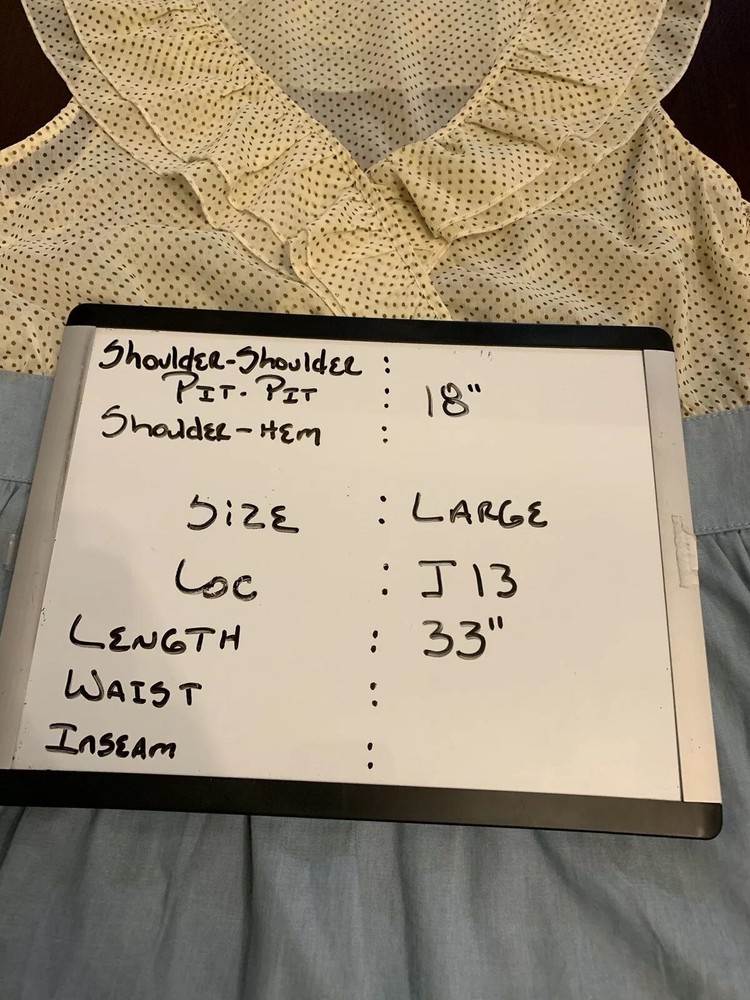 Shoulder-Shoulder :
Pit-Pit : 18"
Shoulder-Hem :
Size : Large
Loc : J 13
Length : 33"
Waist :
Inseam :